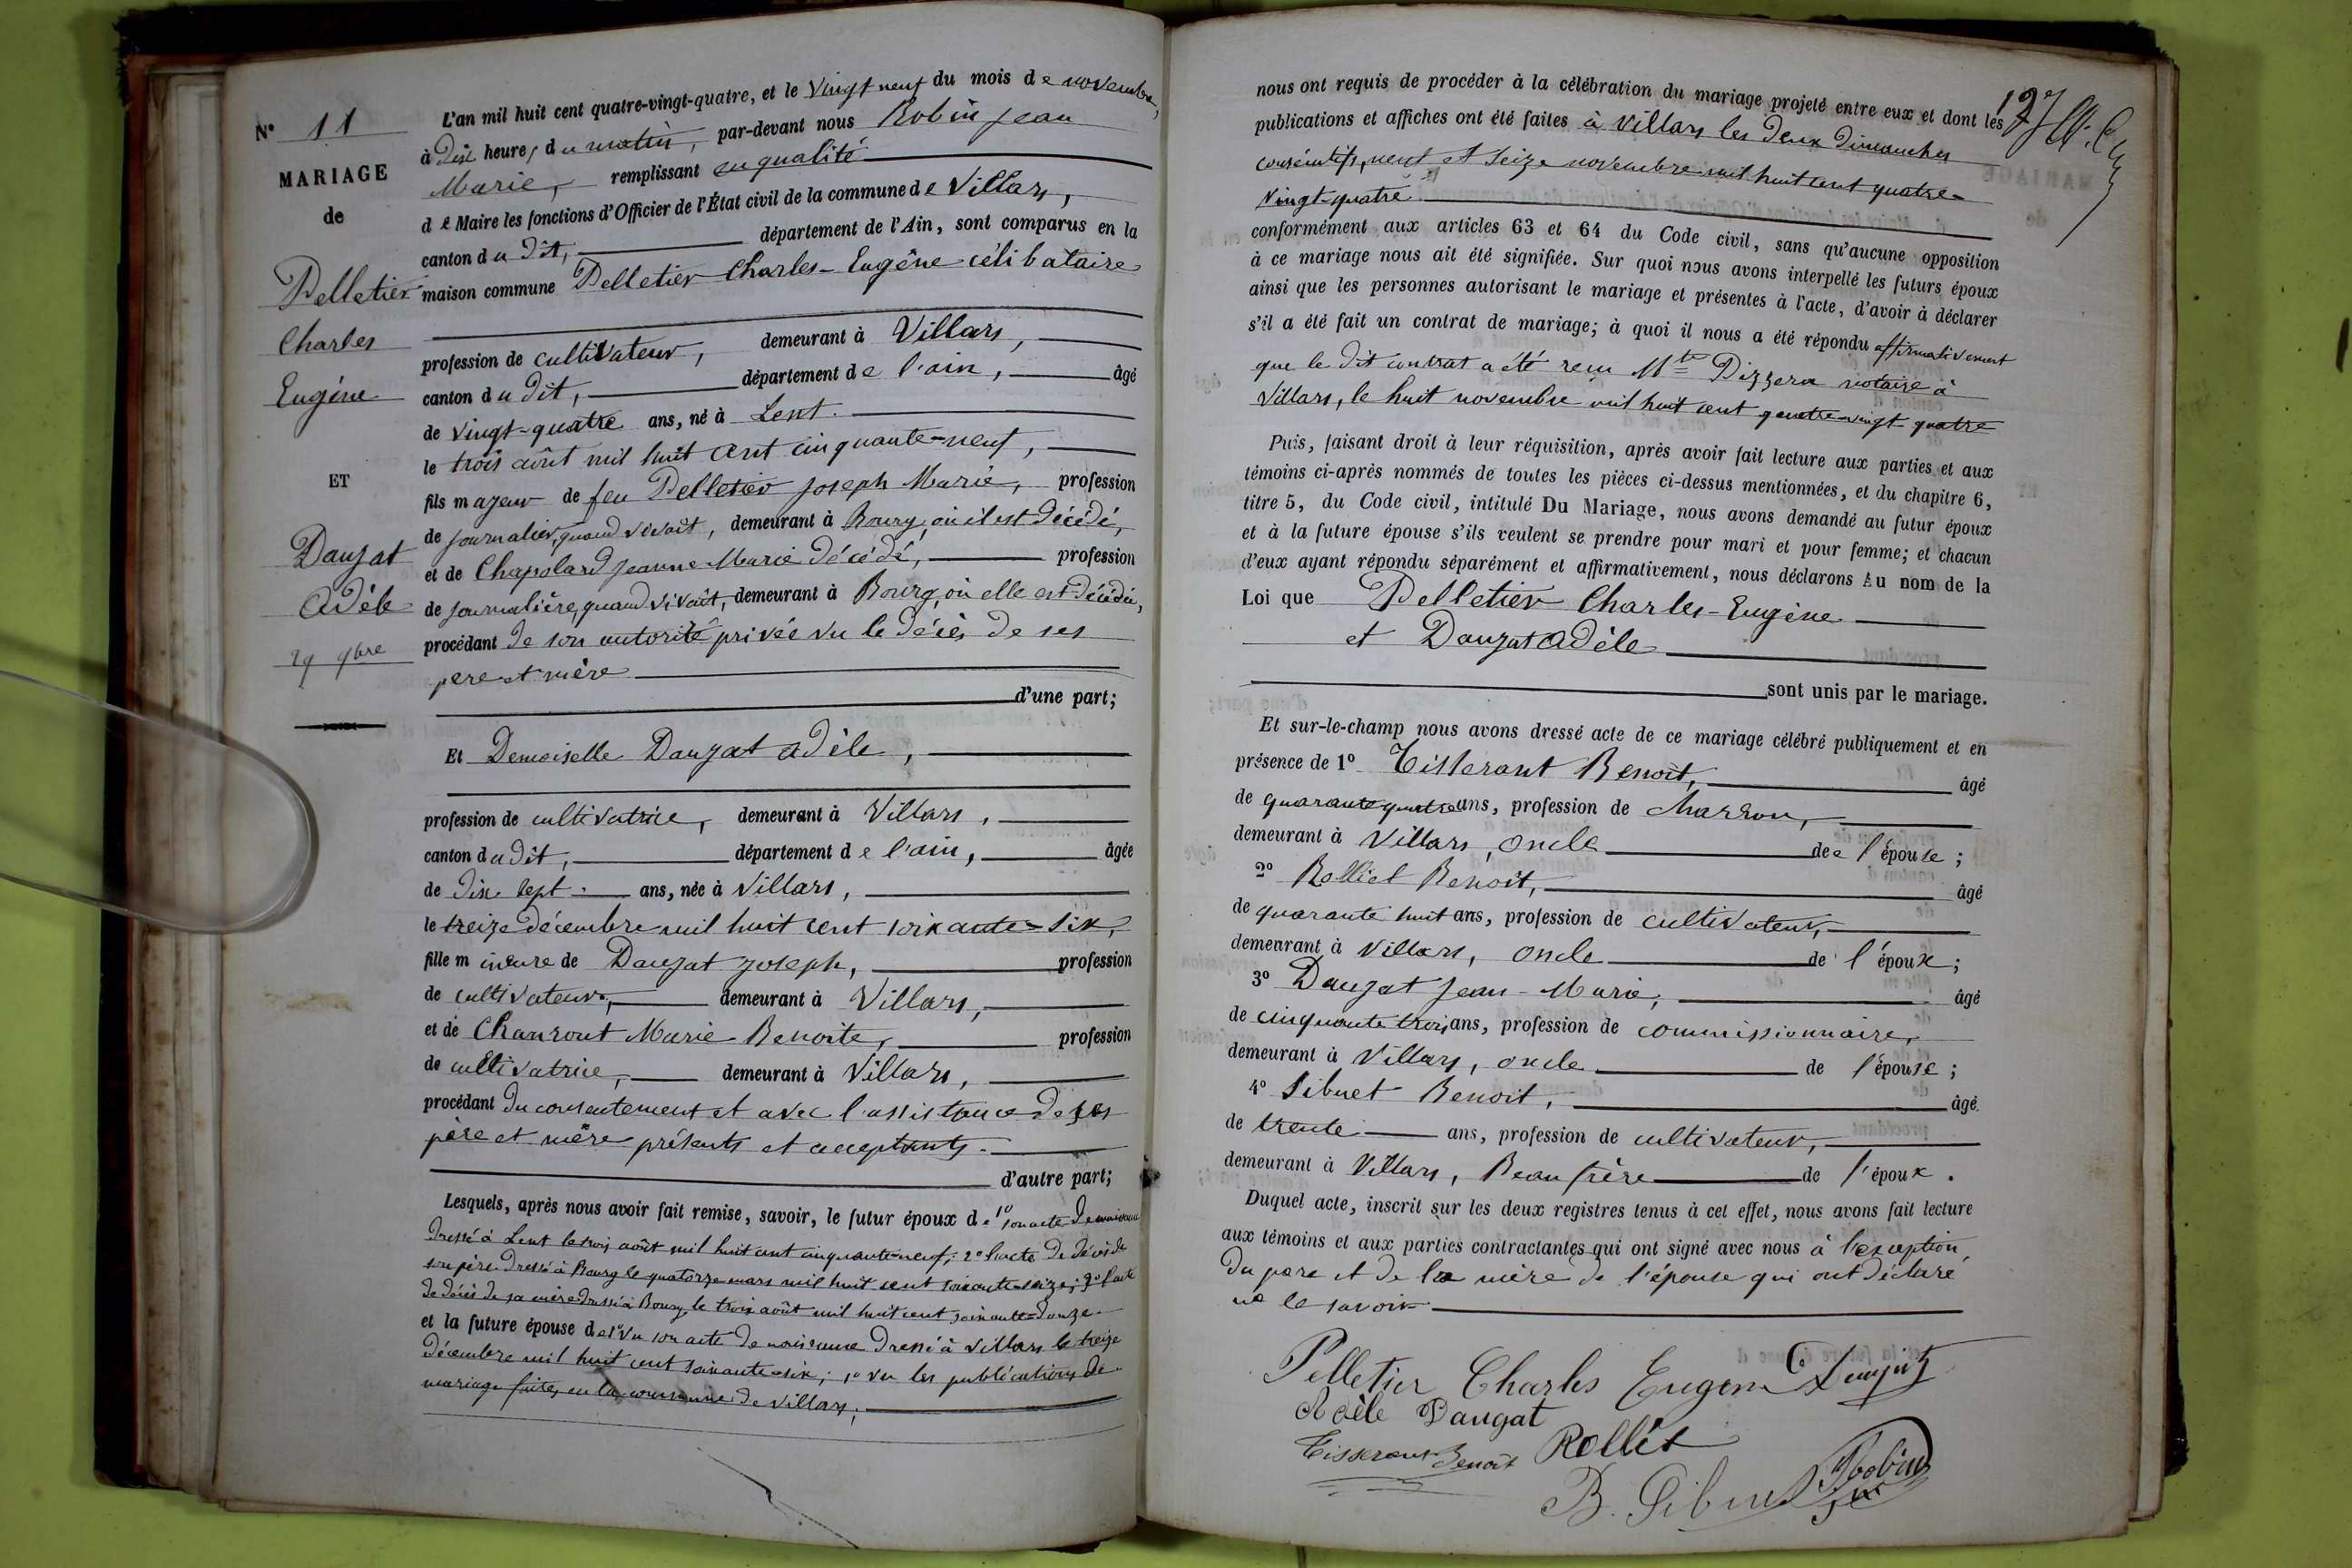 N° 11
MARIAGE
de
Pelletier
Charles
Eugène
ET
Daujat
Adèle
29 9bre
L'an mil huit cent quatre-vingt-quatre, et le vingt neuf du mois de novembre,
à dix heures du matin, par-devant nous Robin Jean
Marie, remplissant en qualité
de Maire les fonctions d'Officier de l'État civil de la commune de Villars,
canton du dit, département de l'Ain, sont comparus en la
maison commune Pelletier Charles-Eugène célibataire
profession de cultivateur, demeurant à Villars,
canton du dit, département de l'ain, âgé
de vingt-quatre ans, né à Lent.
le trois août mil huit cent cinquante-neuf,
fils majeur de feu Pelletier Joseph Marie, profession
de journalier, quand vivait, demeurant à Bourg, où il est décédé,
et de Chapoland Jeanne Marie décédé, profession
de journalière, quand vivait, demeurant à Bourg, où elle est décédée,
procédant de son autorité privée vu le décès de ses
père et mère
d'une part;
Et Demoiselle Daujat adèle,
profession de cultivatrice, demeurant à Villars,
canton du dit, département de l'ain, âgée
de dix sept ans, née à Villars,
le treize décembre mil huit cent soixante-six,
fille mineure de Daujat Joseph, profession
de cultivateur, demeurant à Villars,
et de Chanrout Marie Benoite, profession
de cultivatrice, demeurant à Villars,
procédant du consentement et avec l'assistance de ses
père et mère présents et acceptants.
d'autre part;
Lesquels, après nous avoir fait remise, savoir, le futur époux de 1° son acte de naissance
dressé à Lent le trois août mil huit cent cinquante-neuf; 2° l'acte de décès de
son père dressé à Bourg le quatorze mars mil huit cent soixante-seize; 3° l'acte
de décès de sa mère dressé à Bourg le trois août mil huit cent soixante-douze.
et la future épouse de 1° vu son acte de naissance dressé à Villars le treize
décembre mil huit cent soixante-six; 1° vu les publications de
mariage faites en la commune de Villars;
nous ont requis de procéder à la célébration du mariage projeté entre eux et dont les
publications et affiches ont été faites à Villars les deux dimanches
consécutifs, neuf et seize novembre mil huit cent quatre-
vingt-quatre
conformément aux articles 63 et 64 du Code civil, sans qu'aucune opposition
à ce mariage nous ait été signifiée. Sur quoi nous avons interpellé les futurs époux
ainsi que les personnes autorisant le mariage et présentes à l'acte, d'avoir à déclarer
s'il a été fait un contrat de mariage; à quoi il nous a été répondu affirmativement
que le dit contrat a été reçu Mtre Dizzera notaire à
Villars, le huit novembre mil huit cent quatre-vingt-quatre
Puis, faisant droit à leur réquisition, après avoir fait lecture aux parties et aux
témoins ci-après nommés de toutes les pièces ci-dessus mentionnées, et du chapitre 6,
titre 5, du Code civil, intitulé Du Mariage, nous avons demandé au futur époux
et à la future épouse s'ils veulent se prendre pour mari et pour femme; et chacun
d'eux ayant répondu séparément et affirmativement, nous déclarons Au nom de la
Loi que Pelletier Charles-Eugène
et Daujat Adèle
sont unis par le mariage.
Et sur-le-champ nous avons dressé acte de ce mariage célébré publiquement et en
présence de 1° Tisserant Benoit, âgé
de quarante quatre ans, profession de charron,
demeurant à Villars, oncle de l'épouse;
2° Rolliet Benoit, âgé
de quarante huit ans, profession de cultivateur,
demeurant à Villars, oncle de l'époux;
3° Daujat Jean-Marie, âgé
de cinquante trois ans, profession de commissionnaire,
demeurant à Villars, oncle de l'épouse;
4° Sibuet Benoit, âgé
de trente ans, profession de cultivateur,
demeurant à Villars, Beau frère de l'époux.
Duquel acte, inscrit sur les deux registres tenus à cet effet, nous avons fait lecture
aux témoins et aux parties contractantes qui ont signé avec nous à l'exception
du père et de la mère de l'épouse qui ont déclaré
ne le savoir
Pelletier Charles Eugene Daujat
Adèle Daugat
Tisserant Benoit Rollet
B. Sibuet Robin